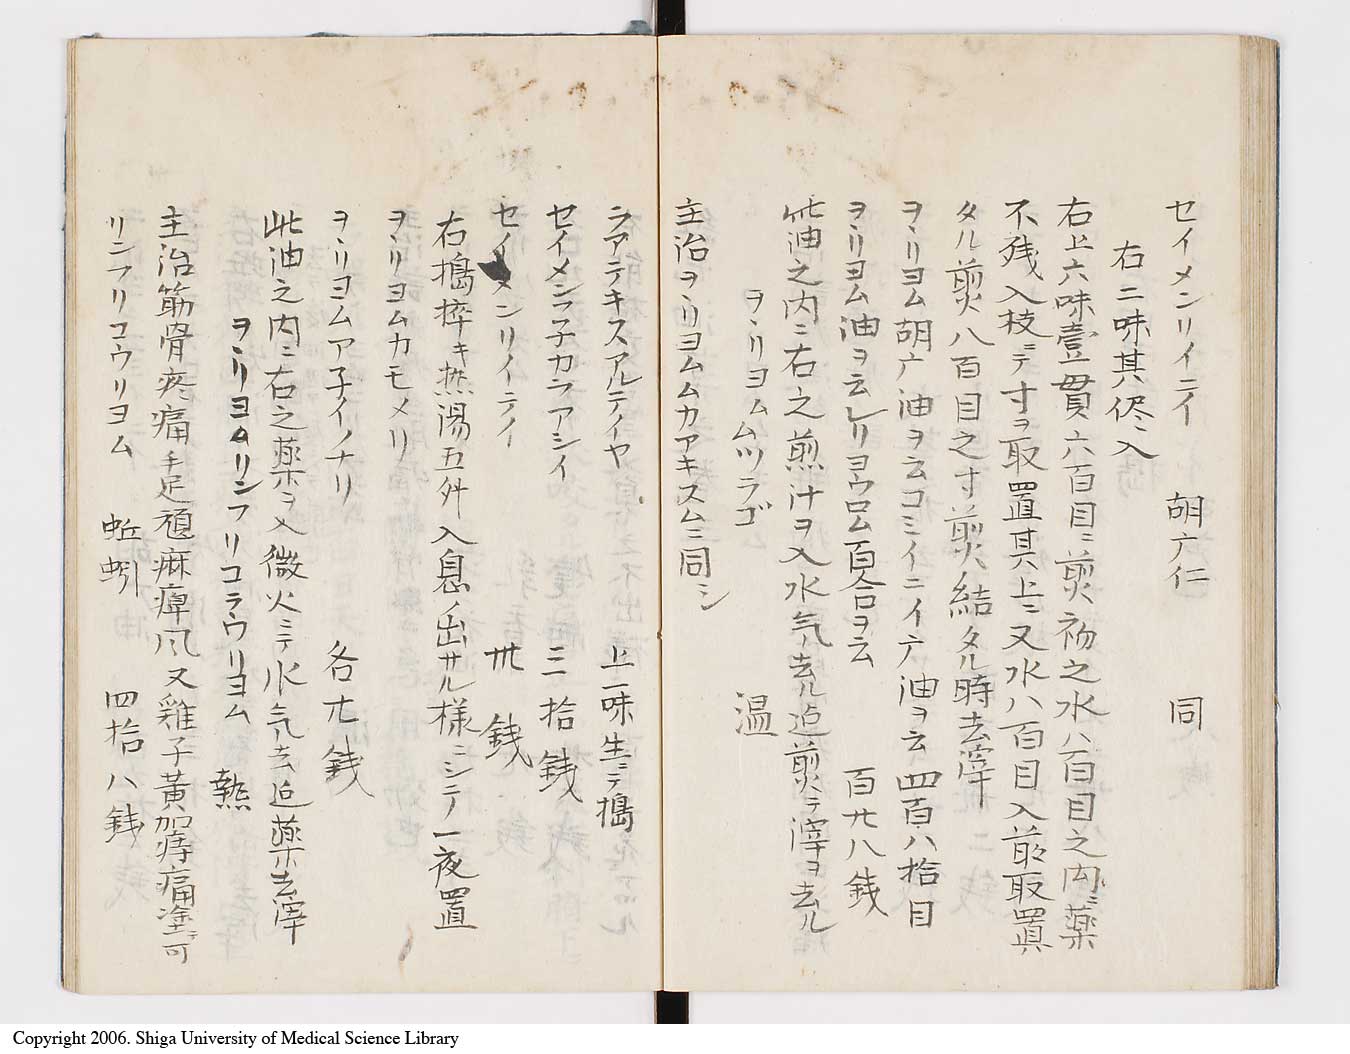 セイメンリイニイ 胡广仁 同
右二味其侭ニ入
右上六味壹貫六百目ニ煎初之水八百目之内ニ薬
不残入枝ニテ寸ヲ取置其上ニ又水八百目入煎取置
タル煎八百目之寸煎結タル時去滓
ヲヽリヨム胡广油ヲ云コミイニイ广油ヲ云 四百八拾目
ヲヽリヨム油ヲ云レリヨウロム百合ヲ云 百廿八銭
此油之内ニ右之煎汁ヲ入水气去ル迠煎テ滓ヲ去ル
ヲヽリヨムムツラゴ 温
主治ヲヽリヨムムカアキスムニ同シ
ラアテキスアルテイヤ 上一味生ニテ搗
セイメンフ子カラアシイ 三拾銭
セイメンリイニイ 卅銭
右搗捽キ热湯五舛入息ノ出サル様ニシテ一夜置
ヲヽリヨムカモメリ
ヲヽリヨムア子イノナリ 各尤銭
此油之内ニ右之薬ヲ入微火ニテ水气去迠薬去滓
ヲヽリヨムリンフリコラウリヨム 熱
主治筋骨疼痛手足頑麻痺风又雞子黄加痔痛塗テ可
リンフリコウリヨム 蚯蚓 四拾八銭
Copyright 2006. Shiga University of Medical Science Library